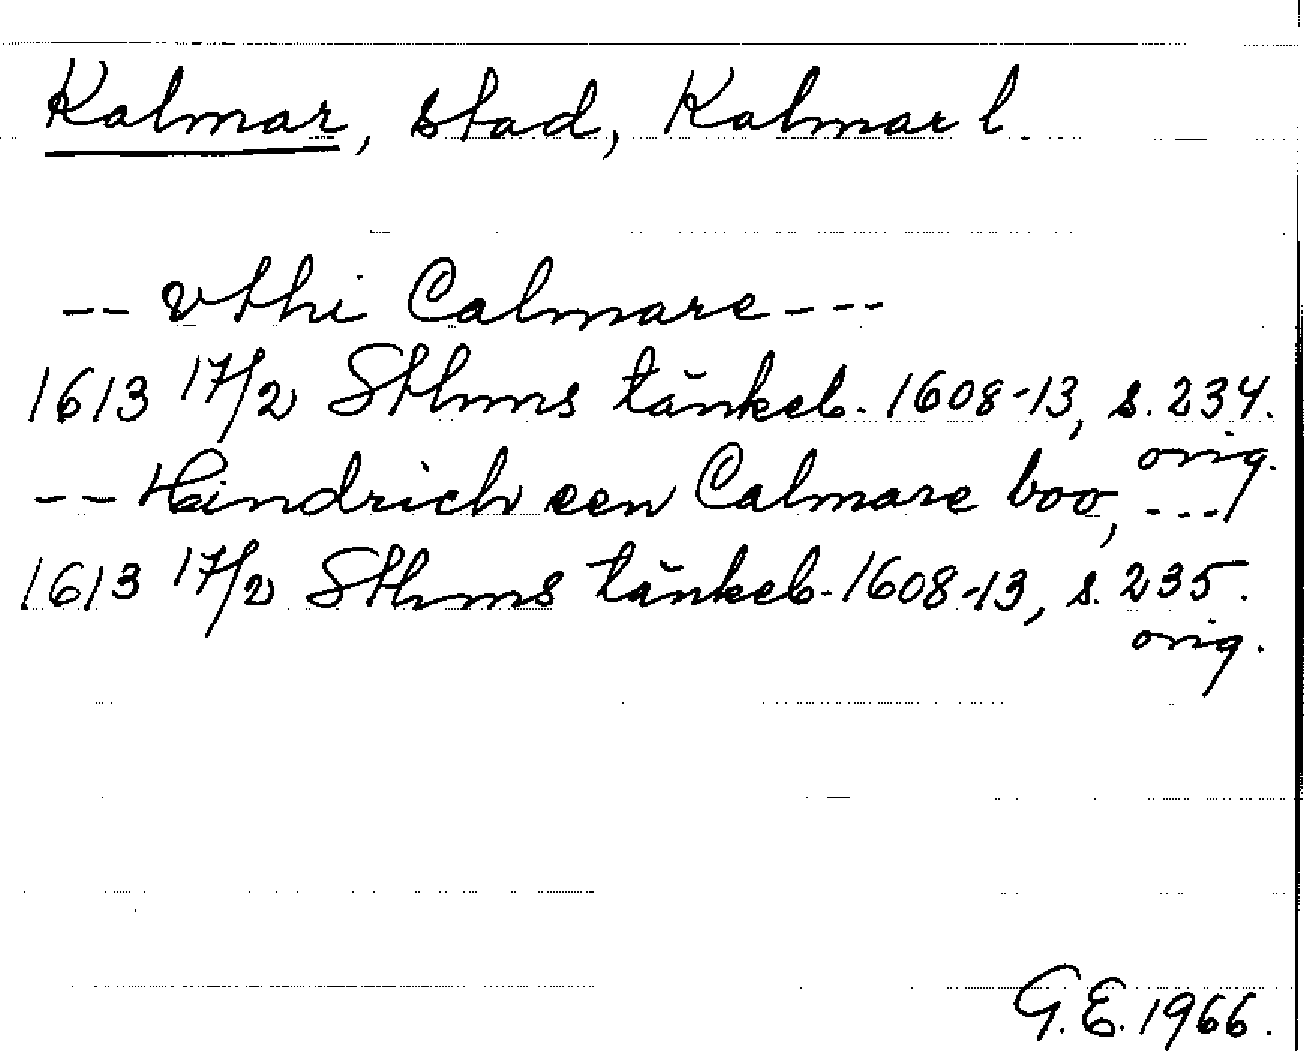 Kalmar, stad, Kalmar l.
-- vthi Calmare ---
1613 17/2 Sthms tänkeb. 1608-13, s. 234.
orig.
-- Heindrich een Calmare boo, ---
1613 17/2 Sthms tänkeb. 1608-13, s. 235.
orig.
G.E. 1966.